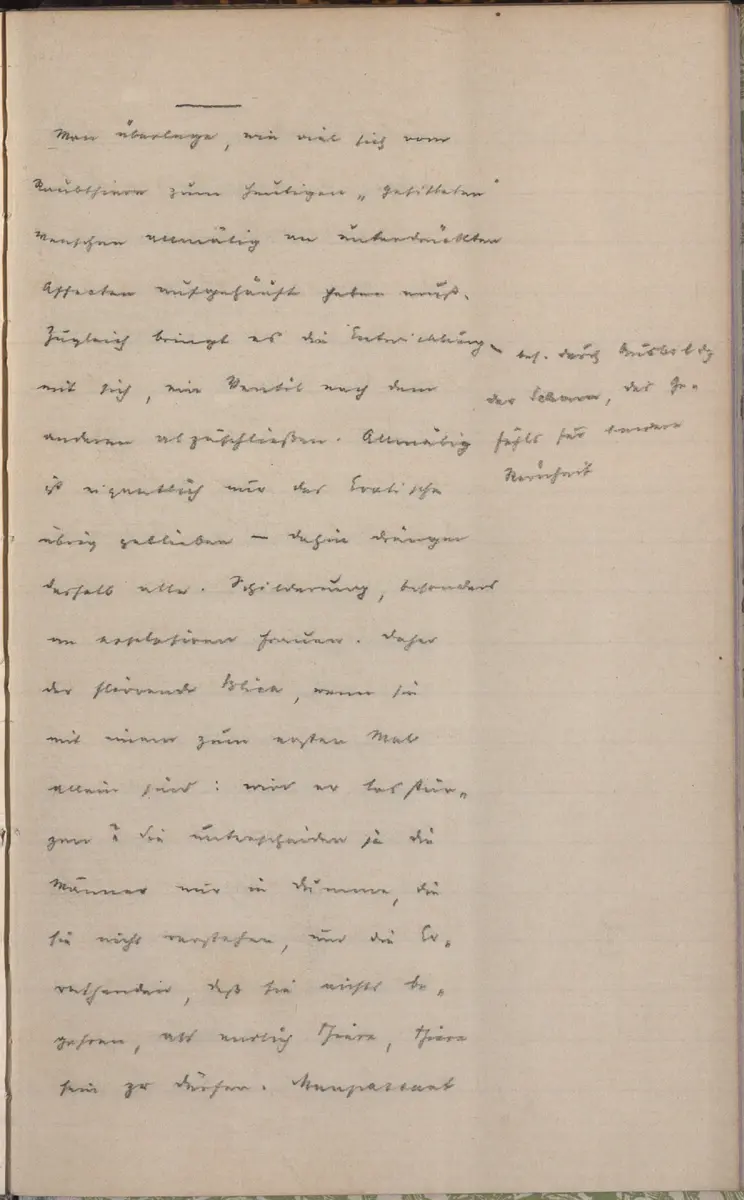 Man überlege, wie viel sich vom
Raubthiere zum heutigen „gesitteten“
Menschen allmälig an unterdrückten
Affecten aufgehäuft haben muß.
Zugleich bringt es die Entwicklung
mit sich, ein Ventil nach dem
anderen abzuschließen. Allmälig
ist eigentlich nur das Erotische
übrig geblieben – dahin drängen
deshalb alle. Schilderung, besonders
an Frauen. Daher
der flirrende Blick, wenn sie
mit einem zum ersten Mal
allein sind: wird er losstür„
zen? Sie unterscheiden ja die
Männer nur in Dumme, die
sie nicht verstehen, und die Er„
rathenden, daß sie nichts be„
gehren, als endlich Thiere, Thiere
sein zu dürfen. Maupassant
bes. durch Ausbildg
der Scham, des Ge„
fühls für
Reinheit